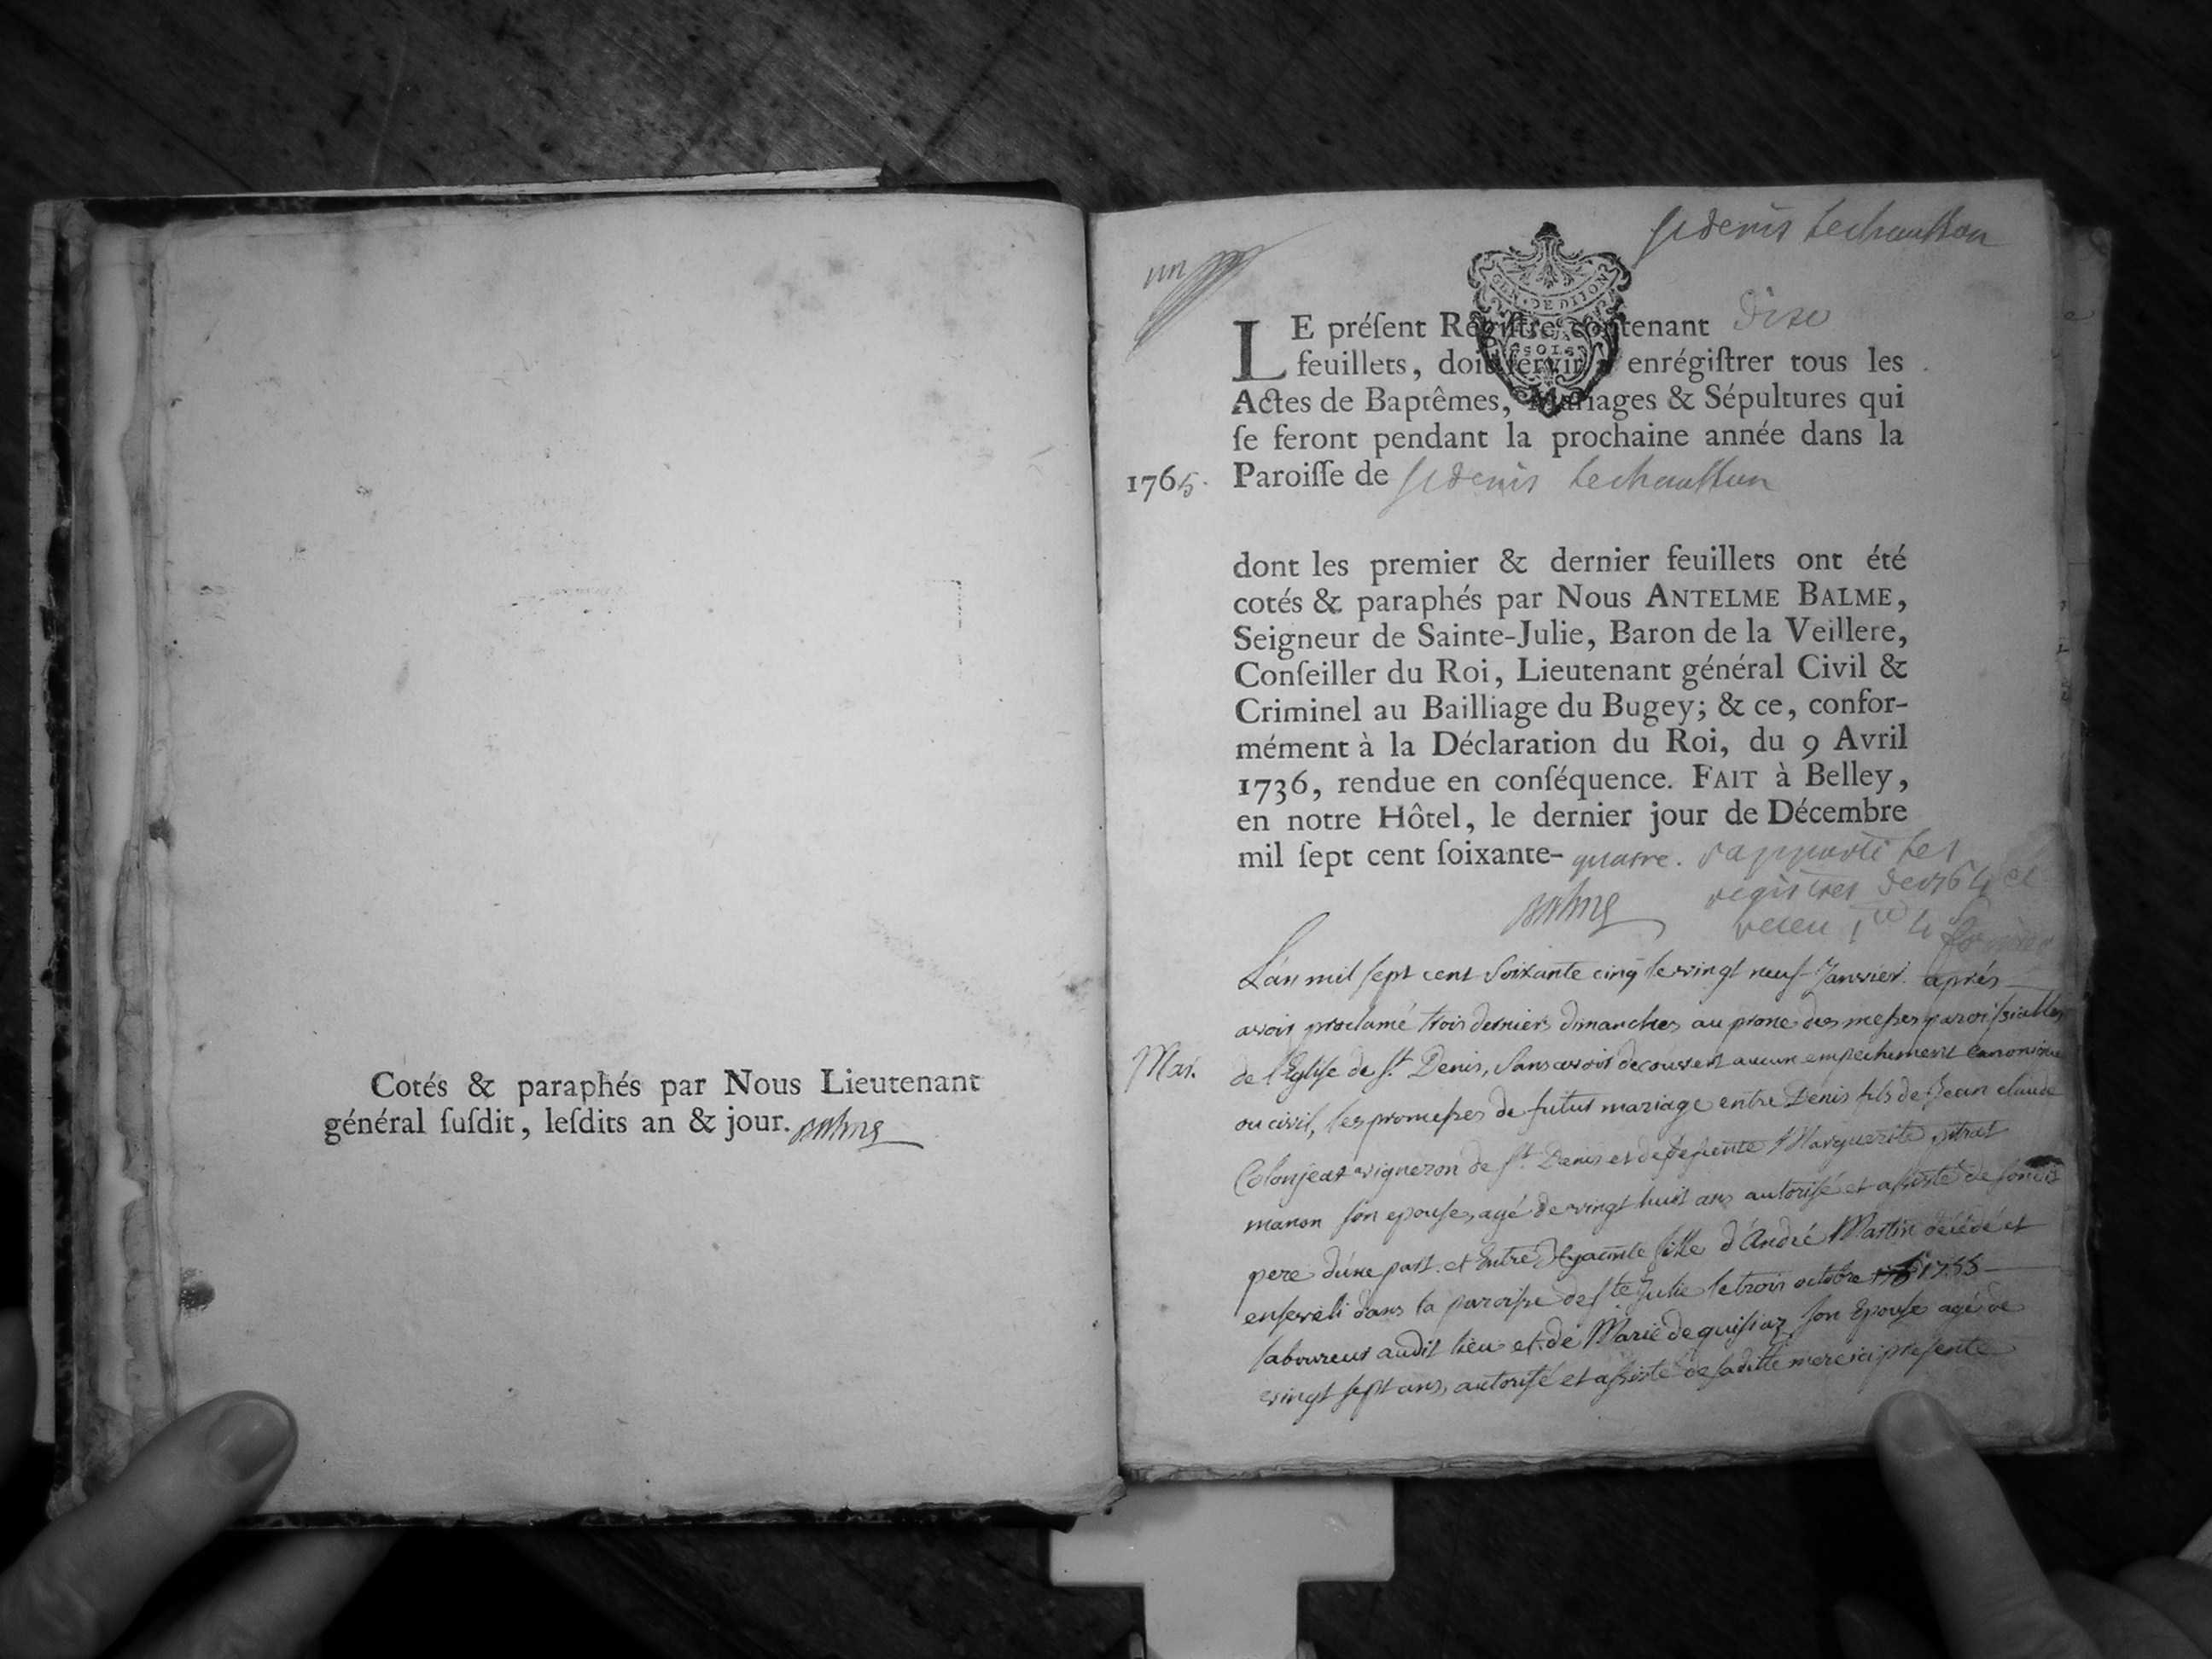 Cotés & paraphés par Nous Lieutenant
général ſuſdit, leſdits an & jour.
un
st denis le chausson
GEN · DE DIJON
LE préſent Régiſtre contenant dix
feuillets, doit ſervir à enrégiſtrer tous les
Actes de Baptêmes, Mariages & Sépultures qui
ſe feront pendant la prochaine année dans la
1765. Paroiſſe de st denis le chausson
dont les premier & dernier feuillets ont été
cotés & paraphés par Nous ANTELME BALME,
Seigneur de Sainte-Julie, Baron de la Veillere,
Conſeiller du Roi, Lieutenant général Civil &
Criminel au Bailliage du Bugey; & ce, confor-
mément à la Déclaration du Roi, du 9 Avril
1736, rendue en conſéquence. FAIT à Belley,
en notre Hôtel, le dernier jour de Décembre
mil ſept cent ſoixante-quatre. rapporté les
registres de 1764 et
receu
Balme
L'an mil sept cent soixante cinq le vingt neuf Janvier après
avoir proclamé trois derniers dimanches au prone des messes paroissialles
Mar. de l'Eglise de St. Denis, sans avoir decouvert aucun empechement canonique
ou civil, les promesses de futur mariage entre Denis fils de Jean claude
Colonjeat vigneron de St. Denis et de Marguerite pitrat
manon son epouse, agé de vingt huit ans autorisé et assisté de sondit
pere d'une part. et Entre Hyacinte fille d'André Martin décédé et
enseveli dans la paroisse de Ste. Julie le trois octobre 1755
laboureur audit lieu et de Marie deguissiaz son Epouse agé de
vingt sept ans, autorisé et assisté de sa ditte mere ici presente